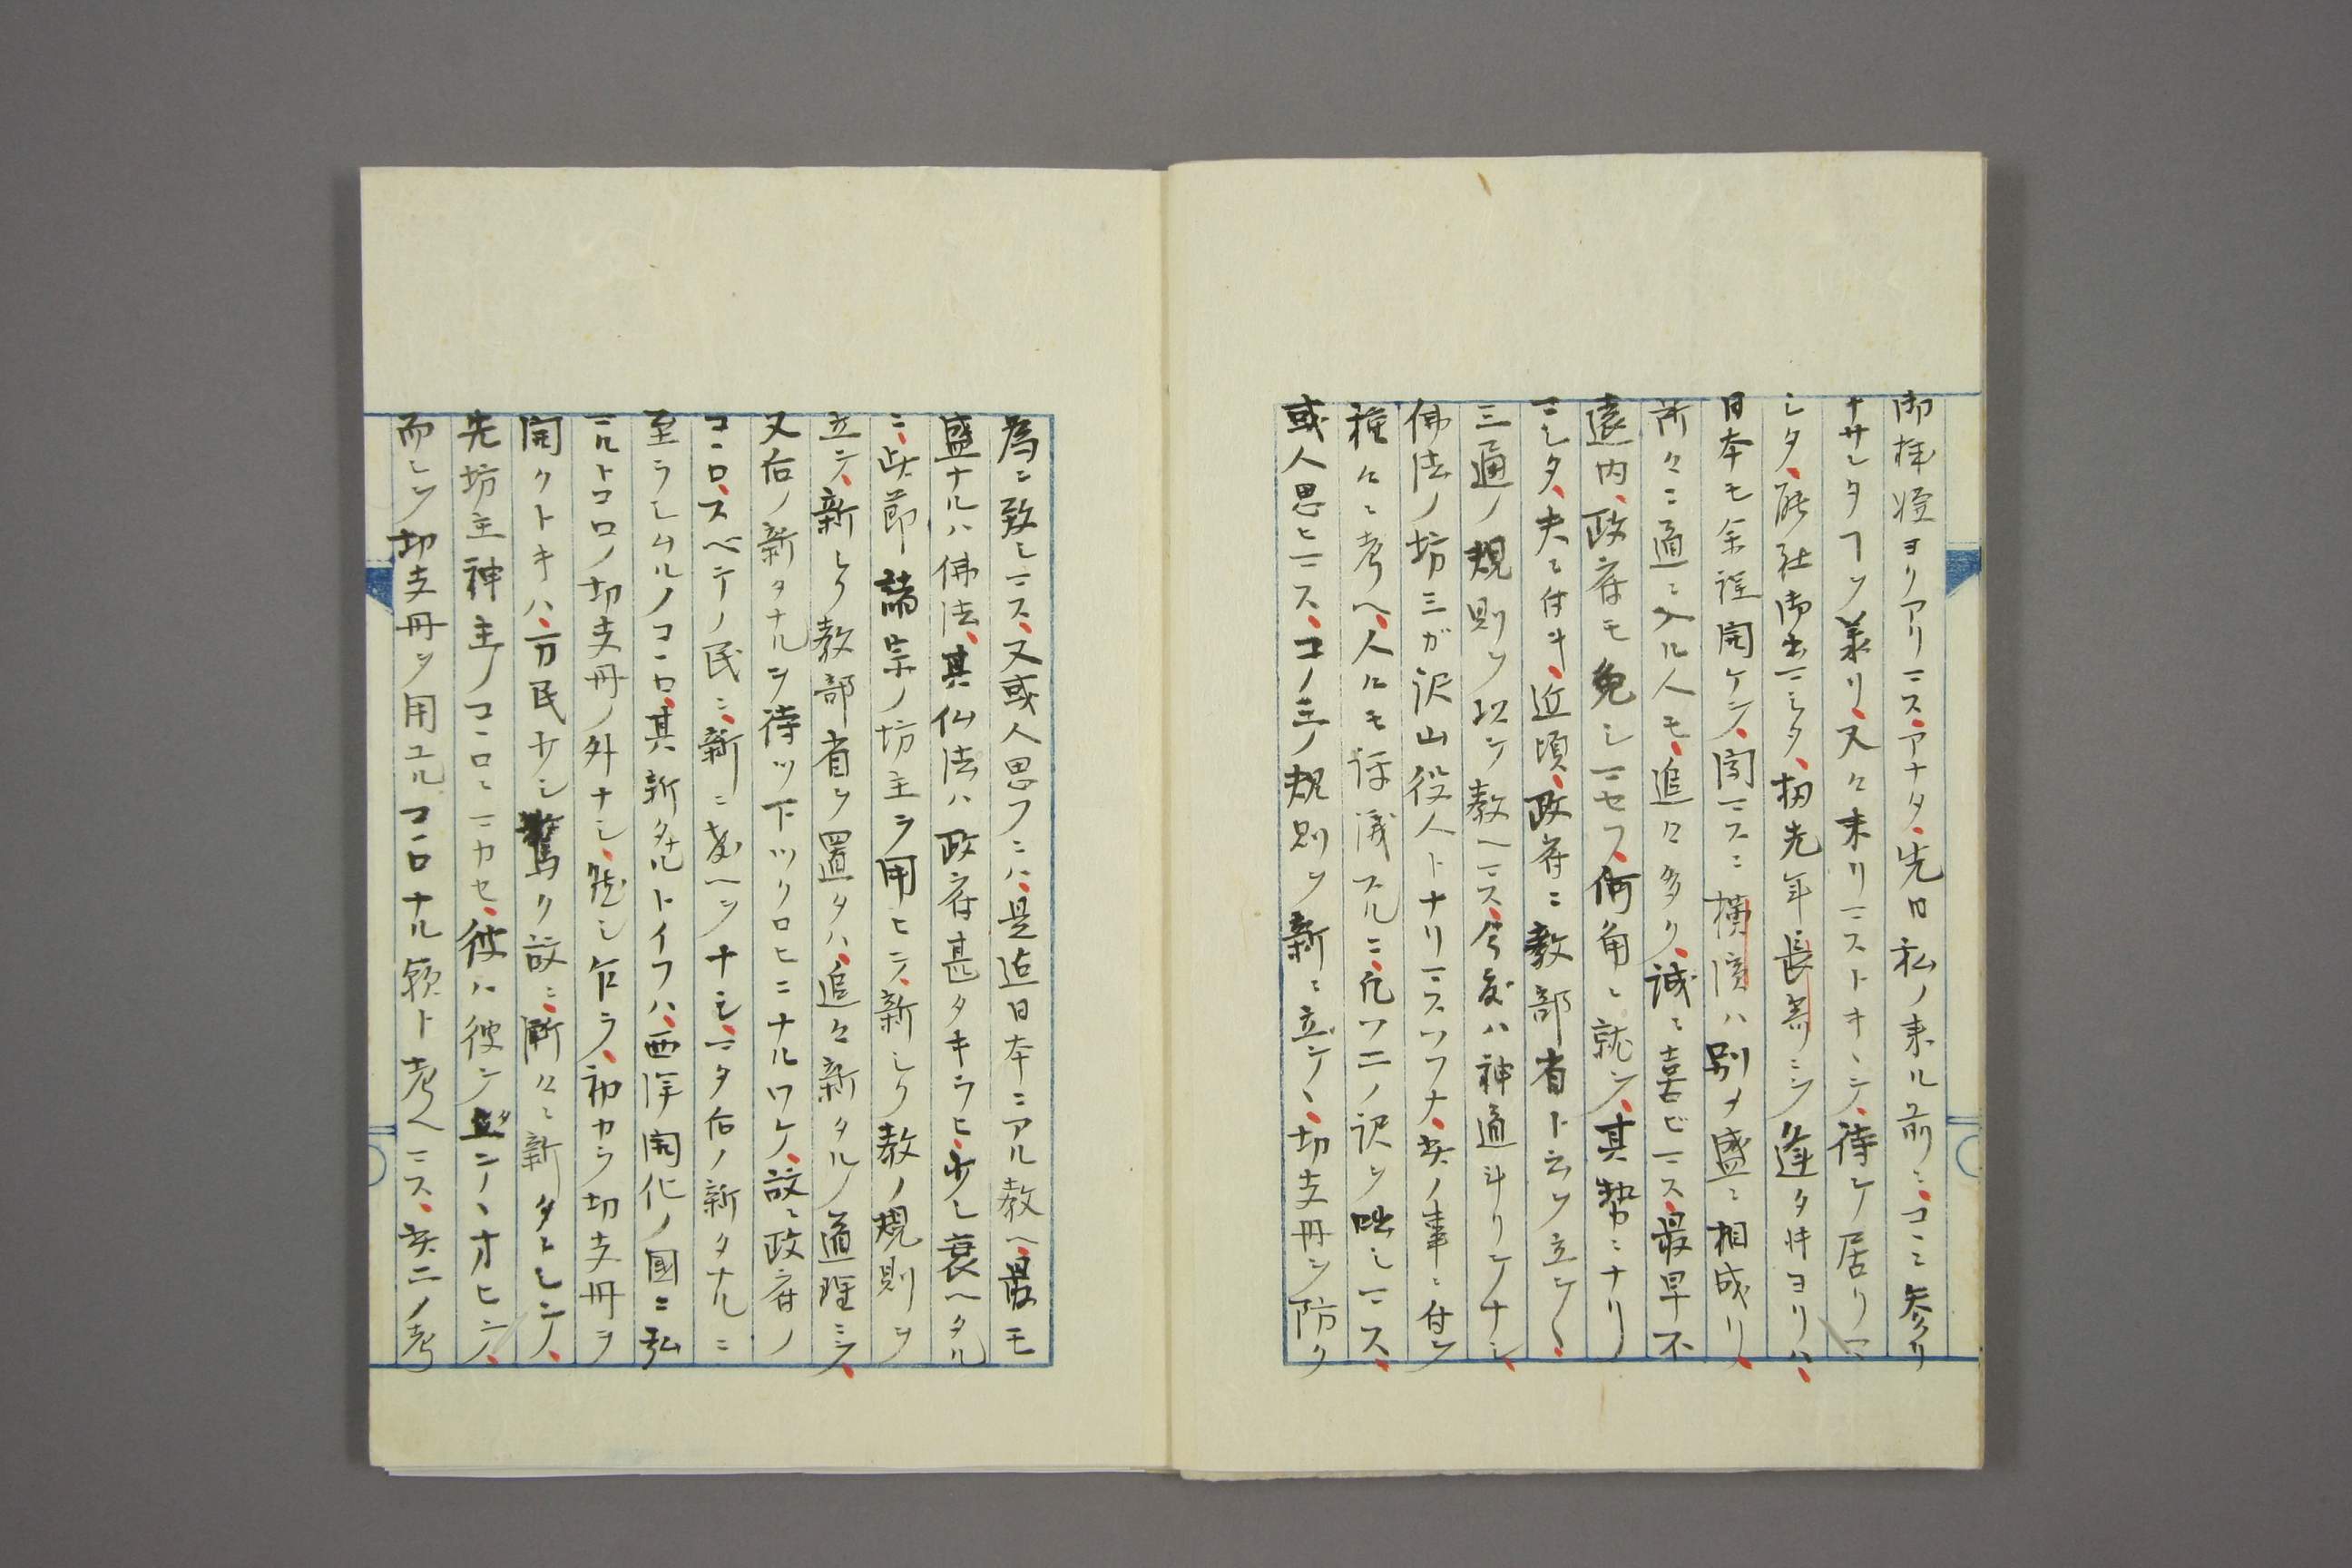 御拝姪ヨリアリマス、アナタ、先日私ノ来ル前ニ、コヽニ参リ
ナサレタコヲ義リ、又々来リマストキニテ、待シケ居リマ
シタ、能社御出マシタ、扨先年長崎ニテ逢タ時ヨリハ、
日本モ余程開ケテ、聞マスニ横濱ハ別メ盛ニ相成リ、
所々ニ道ニ入ル人モ、追々多ク、誠ニ喜ビマス、最早不
遠内、政府モ免シマセフ、何角ニ就テ、其勢ニナリ
マシタ、夫ニ付キ、近頃、政府ニ教部省ト云ヲ立ケ〱、
三通ノ規則ヲ以テ教ヘマス、今度ハ神道斗リテナシ、
佛法ノ坊三ガ沢山役人トナリマスソフナ、其ノ事ニ付テ
種々ニ考ヘ、人々モ評議スルニ、凡ソ二ノ訳ヲ咄シマス、
或人思ヒマス、コノ三ノ規則ヲ新ニ立テヽ、切支丹ヲ防ク
為ニ致シマス、又或人思フニハ、是迄日本ニアル教ヘ、最モ
盛ナルハ佛法、其仏法ハ政府甚タキラヒ、少シ衰ヘタル
ニ、此節諸宗ノ坊主ヲ用ヒテ、新シク教ノ規則ヲ
立テ、新シク教部省ヲ置タハ、追々新タルノ道理ニテ、
又右ノ新タナルヲ待ツ下ツクロヒニナルワケ、故ニ政府ノ
コヽロ、スベテノ民ニ、新ニ教ヘヲナシ、マタ右ノ新タナルニ
至ラシムルノコヽロ、其新タルトイフハ、西洋開化ノ國ニ弘
マルトコロノ切支丹ノ外ナシ、然シ乍ラ、初カラ切支丹ヲ
開クトキハ、万民少シ驚ク故ニ、漸々ニ新タニシテ、
先坊主神主ノコヽロニマカセ、彼ハ彼ヲ立テヽオヒテ、
而シテ切支丹ヲ用ユルコヽロナル歟ト考ヘマス、其二ノ考